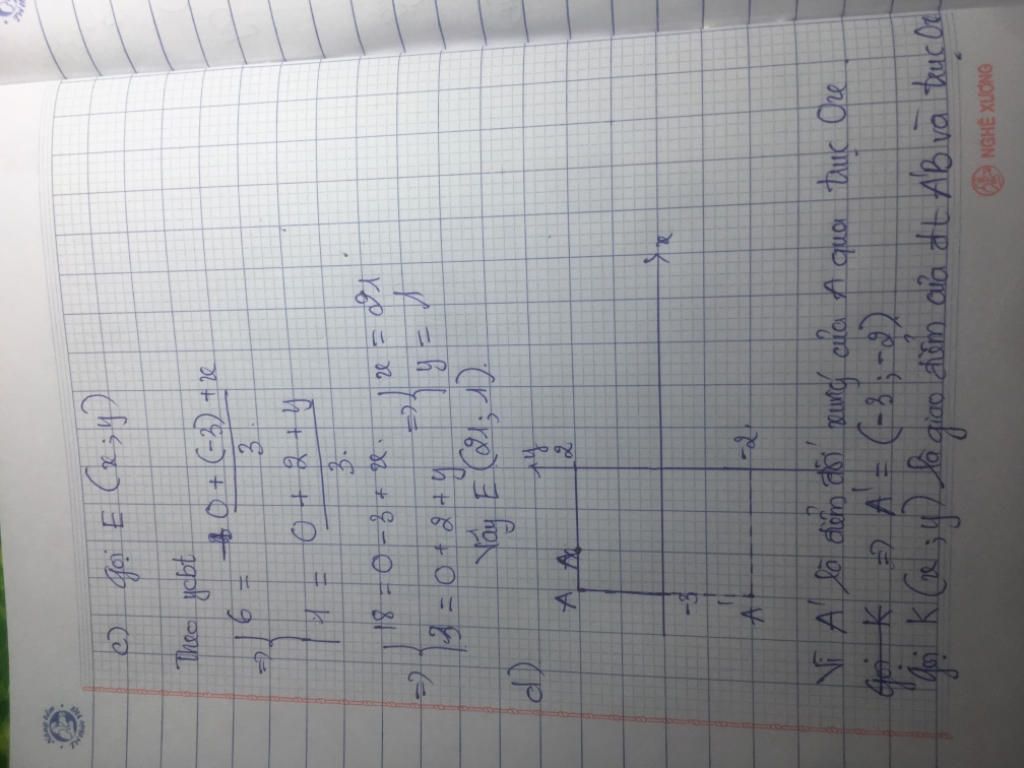 c) Gọi E (x ; y)
Theo ycbt
=> { 6 = 0 + (-3) + x / 3
1 = 0 + 2 + y / 3
=> { 18 = 0 - 3 + x => { x = 21
3 = 0 + 2 + y y = 1
Vậy E (21 ; 1).
d)
y
A 2
x
-3
A' -2
Vì A' là điểm đối xứng của A qua trục Ox
Gọi K => A' = (-3 ; -2)
Gọi K (x ; y) là giao điểm của đt A'B và trục Ox
NGHÊ XƯƠNG